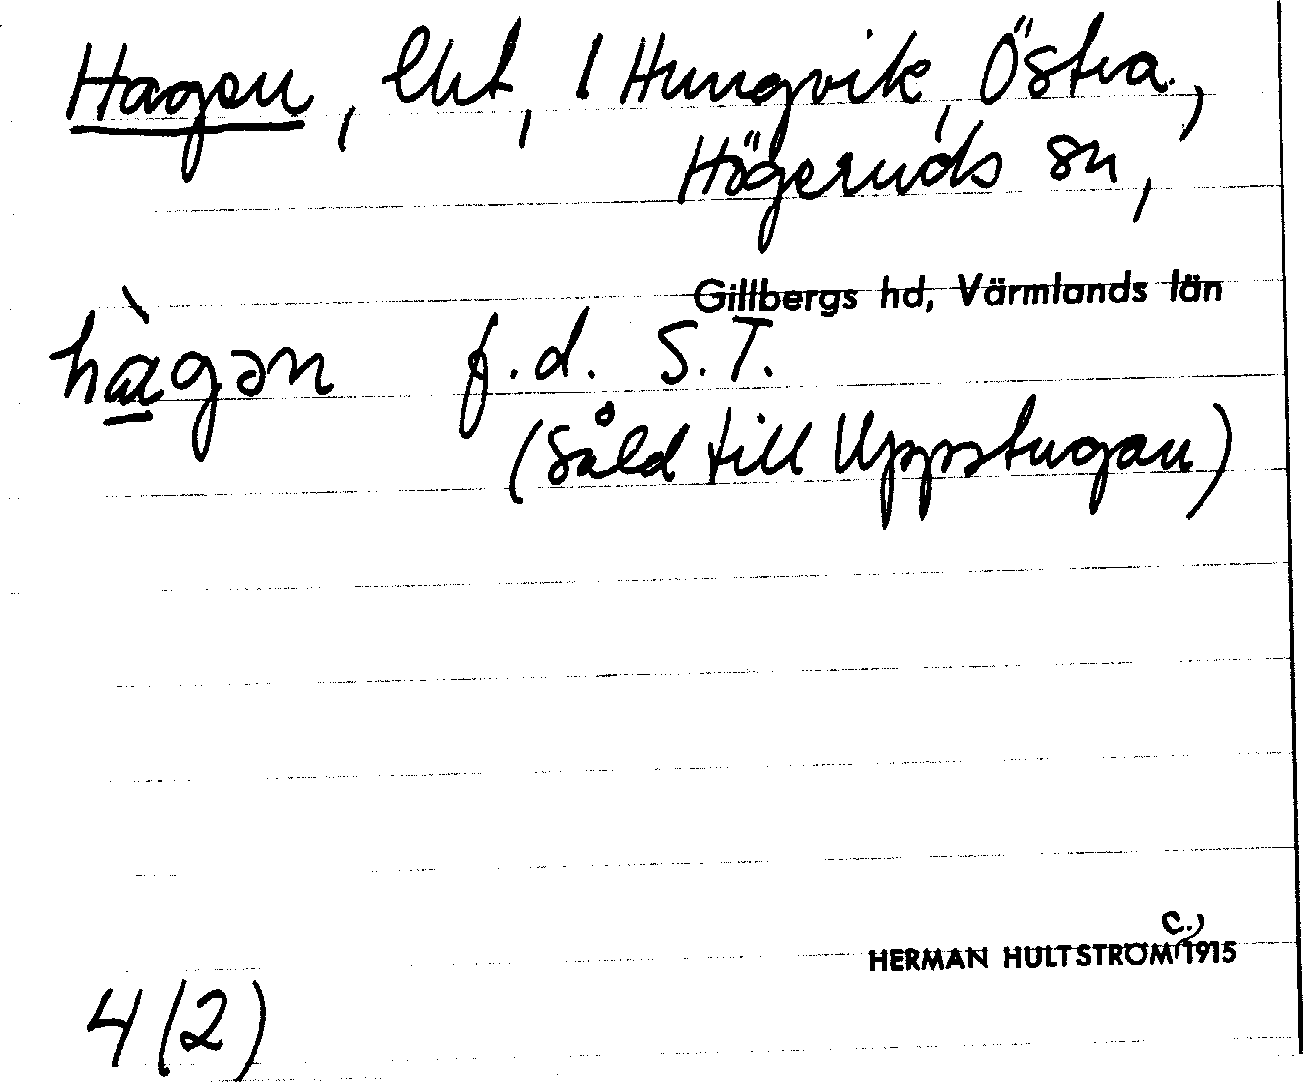 Hagen, lht, 1 Hungvik, Östra,
Högeruds sn,
Gillbergs hd, Värmlands län
hàgən f.d. S.T.
(såld till Uppstugan)
C.,
HERMAN HULTSTRÖM 1915
4 (2)